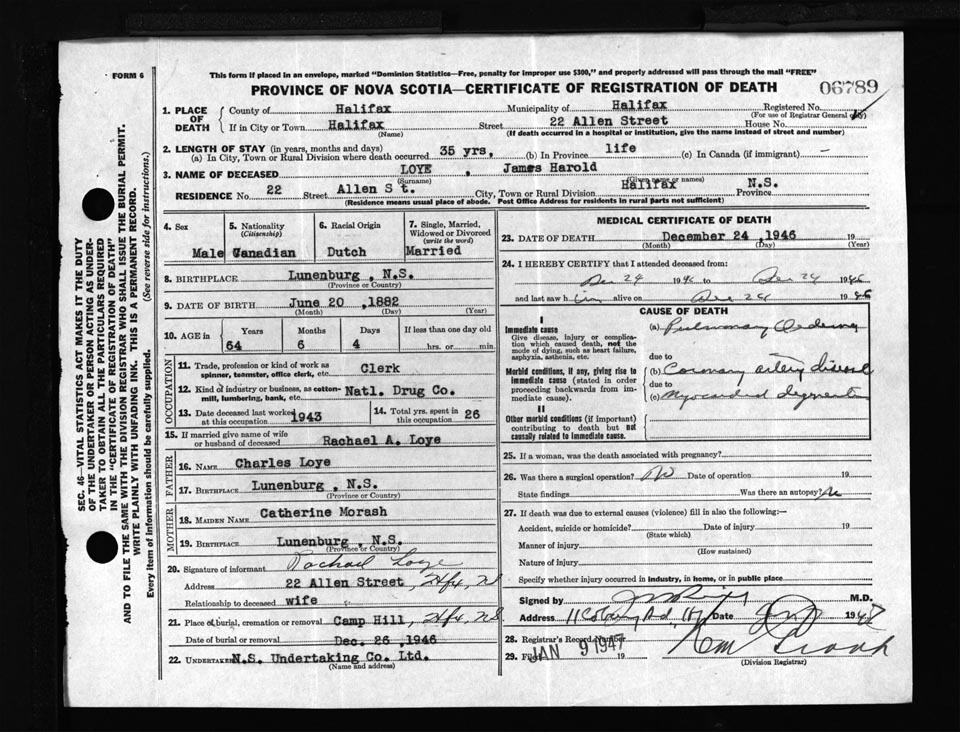 FORM 6
This form if placed in an envelope, marked "Dominion Statistics—Free, penalty for improper use $300," and properly addressed will pass through the mail "FREE"
PROVINCE OF NOVA SCOTIA—CERTIFICATE OF REGISTRATION OF DEATH
06789
1. PLACE OF DEATH
County of Halifax Municipality of Halifax Registered No.
(For use of Registrar General only)
If in City or Town Halifax Street 22 Allen Street House No.
(Name) (If death occurred in a hospital or institution, give the name instead of street and number)
2. LENGTH OF STAY (in years, months and days)
(a) In City, Town or Rural Division where death occurred 35 yrs, (b) In Province life (c) In Canada (if immigrant) —
3. NAME OF DECEASED LOYE , James Harold
(Surname) (Given name or names)
RESIDENCE No. 22 Street Allen S t. City, Town or Rural Division Halifax Province N.S.
(Residence means usual place of abode. Post Office Address for residents in rural parts not sufficient)
4. Sex
Male
5. Nationality
(Citizenship)
Canadian
6. Racial Origin
Dutch
7. Single, Married, Widowed or Divorced
(write the word)
Married
8. BIRTHPLACE Lunenburg , N.S.
(Province or Country)
9. DATE OF BIRTH June 20 ,1882
(Month) (Day) (Year)
10. AGE in
Years Months Days If less than one day old
64 6 4 hrs. or min.
OCCUPATION
11. Trade, profession or kind of work as spinner, teamster, office clerk, etc. Clerk
12. Kind of industry or business, as cotton-mill, lumbering, bank, etc. Natl. Drug Co.
13. Date deceased last worked at this occupation 1943
14. Total yrs. spent in this occupation 26
15. If married give name of wife or husband of deceased Rachael A. Loye
FATHER
16. NAME Charles Loye
17. BIRTHPLACE Lunenburg , N.S.
(Province or Country)
MOTHER
18. MAIDEN NAME Catherine Morash
19. BIRTHPLACE Lunenburg , N.S.
(Province or Country)
20. Signature of informant Rachael Loye
Address 22 Allen Street , Hfx, NS
Relationship to deceased wife
21. Place of burial, cremation or removal Camp Hill, Hfx, NS
Date of burial or removal Dec. 26 ,1946
22. UNDERTAKER N.S. Undertaking Co. Ltd.
(Name and address)
MEDICAL CERTIFICATE OF DEATH
23. DATE OF DEATH December 24 ,1946 19
(Month) (Day) (Year)
24. I HEREBY CERTIFY that I attended deceased from:
Dec 24 1946 to Dec 24 1946
and last saw him alive on Dec 24 1946
CAUSE OF DEATH
I
Immediate cause
Give disease, injury or complication which caused death, not the mode of dying, such as heart failure, asphyxia, asthenia, etc.
(a) Pulmonary Oedema
due to
Morbid conditions, if any, giving rise to immediate cause (stated in order proceeding backwards from immediate cause).
(b) Coronary artery disease
due to
(c) Myocardial degeneration
II
Other morbid conditions (if important) contributing to death but not causally related to immediate cause.
25. If a woman, was the death associated with pregnancy?
26. Was there a surgical operation? No Date of operation 19
State findings Was there an autopsy? No
27. If death was due to external causes (violence) fill in also the following:—
Accident, suicide or homicide? Date of injury 19
(State which)
Manner of injury
(How sustained)
Nature of injury
Specify whether injury occurred in industry, in home, or in public place
Signed by M.D.
Address Date 19
28. Registrar's Record Number
29. Filed JAN 9 1947 19
(Division Registrar)
SEC. 46—VITAL STATISTICS ACT MAKES IT THE DUTY
OF THE UNDERTAKER OR PERSON ACTING AS UNDER-
TAKER TO OBTAIN ALL THE PARTICULARS REQUIRED
IN THE "CERTIFICATE OF REGISTRATION OF DEATH"
AND TO FILE THE SAME WITH THE DIVISION REGISTRAR WHO SHALL ISSUE THE BURIAL PERMIT.
WRITE PLAINLY WITH UNFADING INK. THIS IS A PERMANENT RECORD.
Every item of information should be carefully supplied. (See reverse side for instructions.)